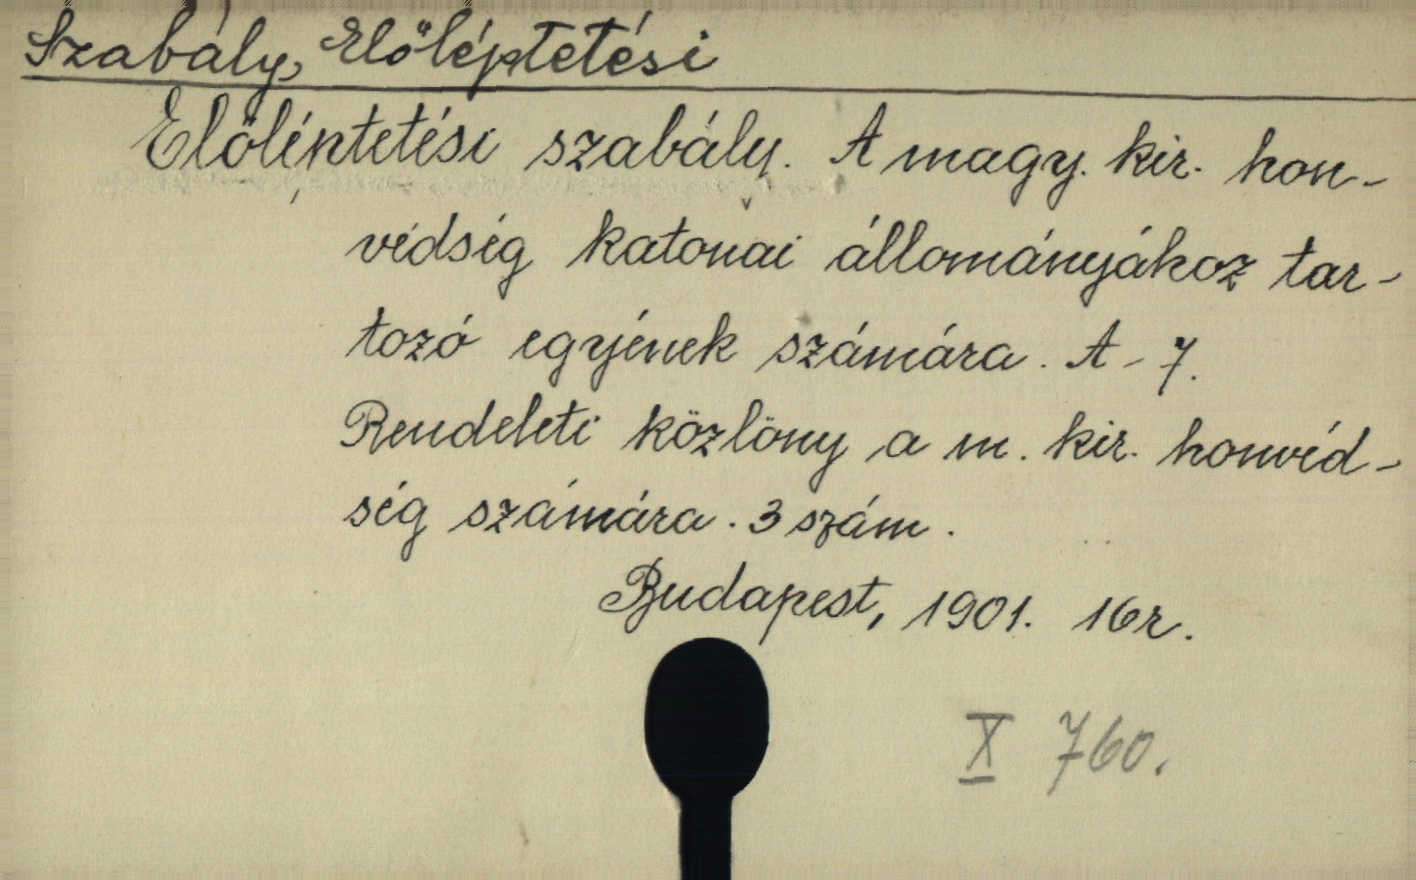 Szabály, Előléptetési
Előléptetési szabály. A magy. kir. hon-
védség katonai állományához tar-
tozó egyének számára. A-7.
Rendeleti közlöny a m. kir. honvéd-
ség számára. 3 szám.
Budapest, 1901. 16r.
X 760.